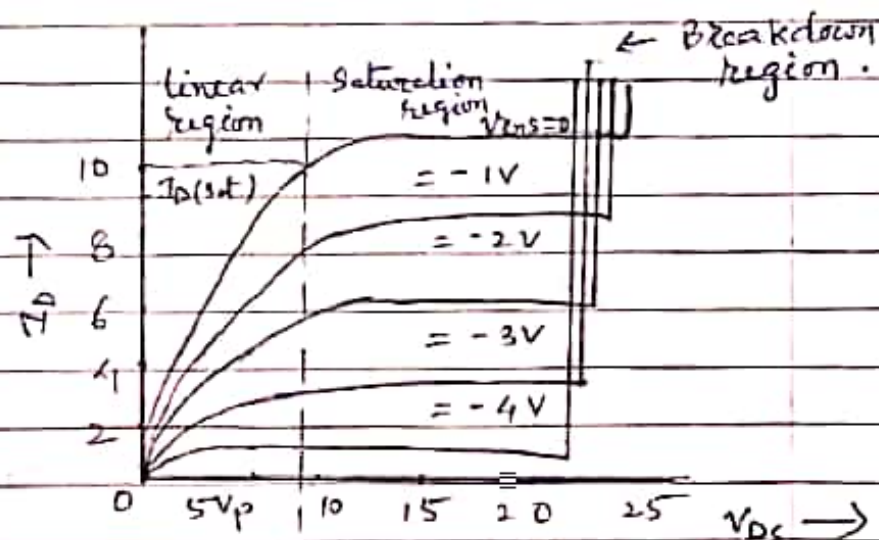 ← Breakdown
region.
linear
region
Saturation
region
VGS=0
10
ID(sat)
= -1V
8
= -2V
ID →
6
= -3V
4
= -4V
2
0 5 Vp 10 15 20 25 VDS →